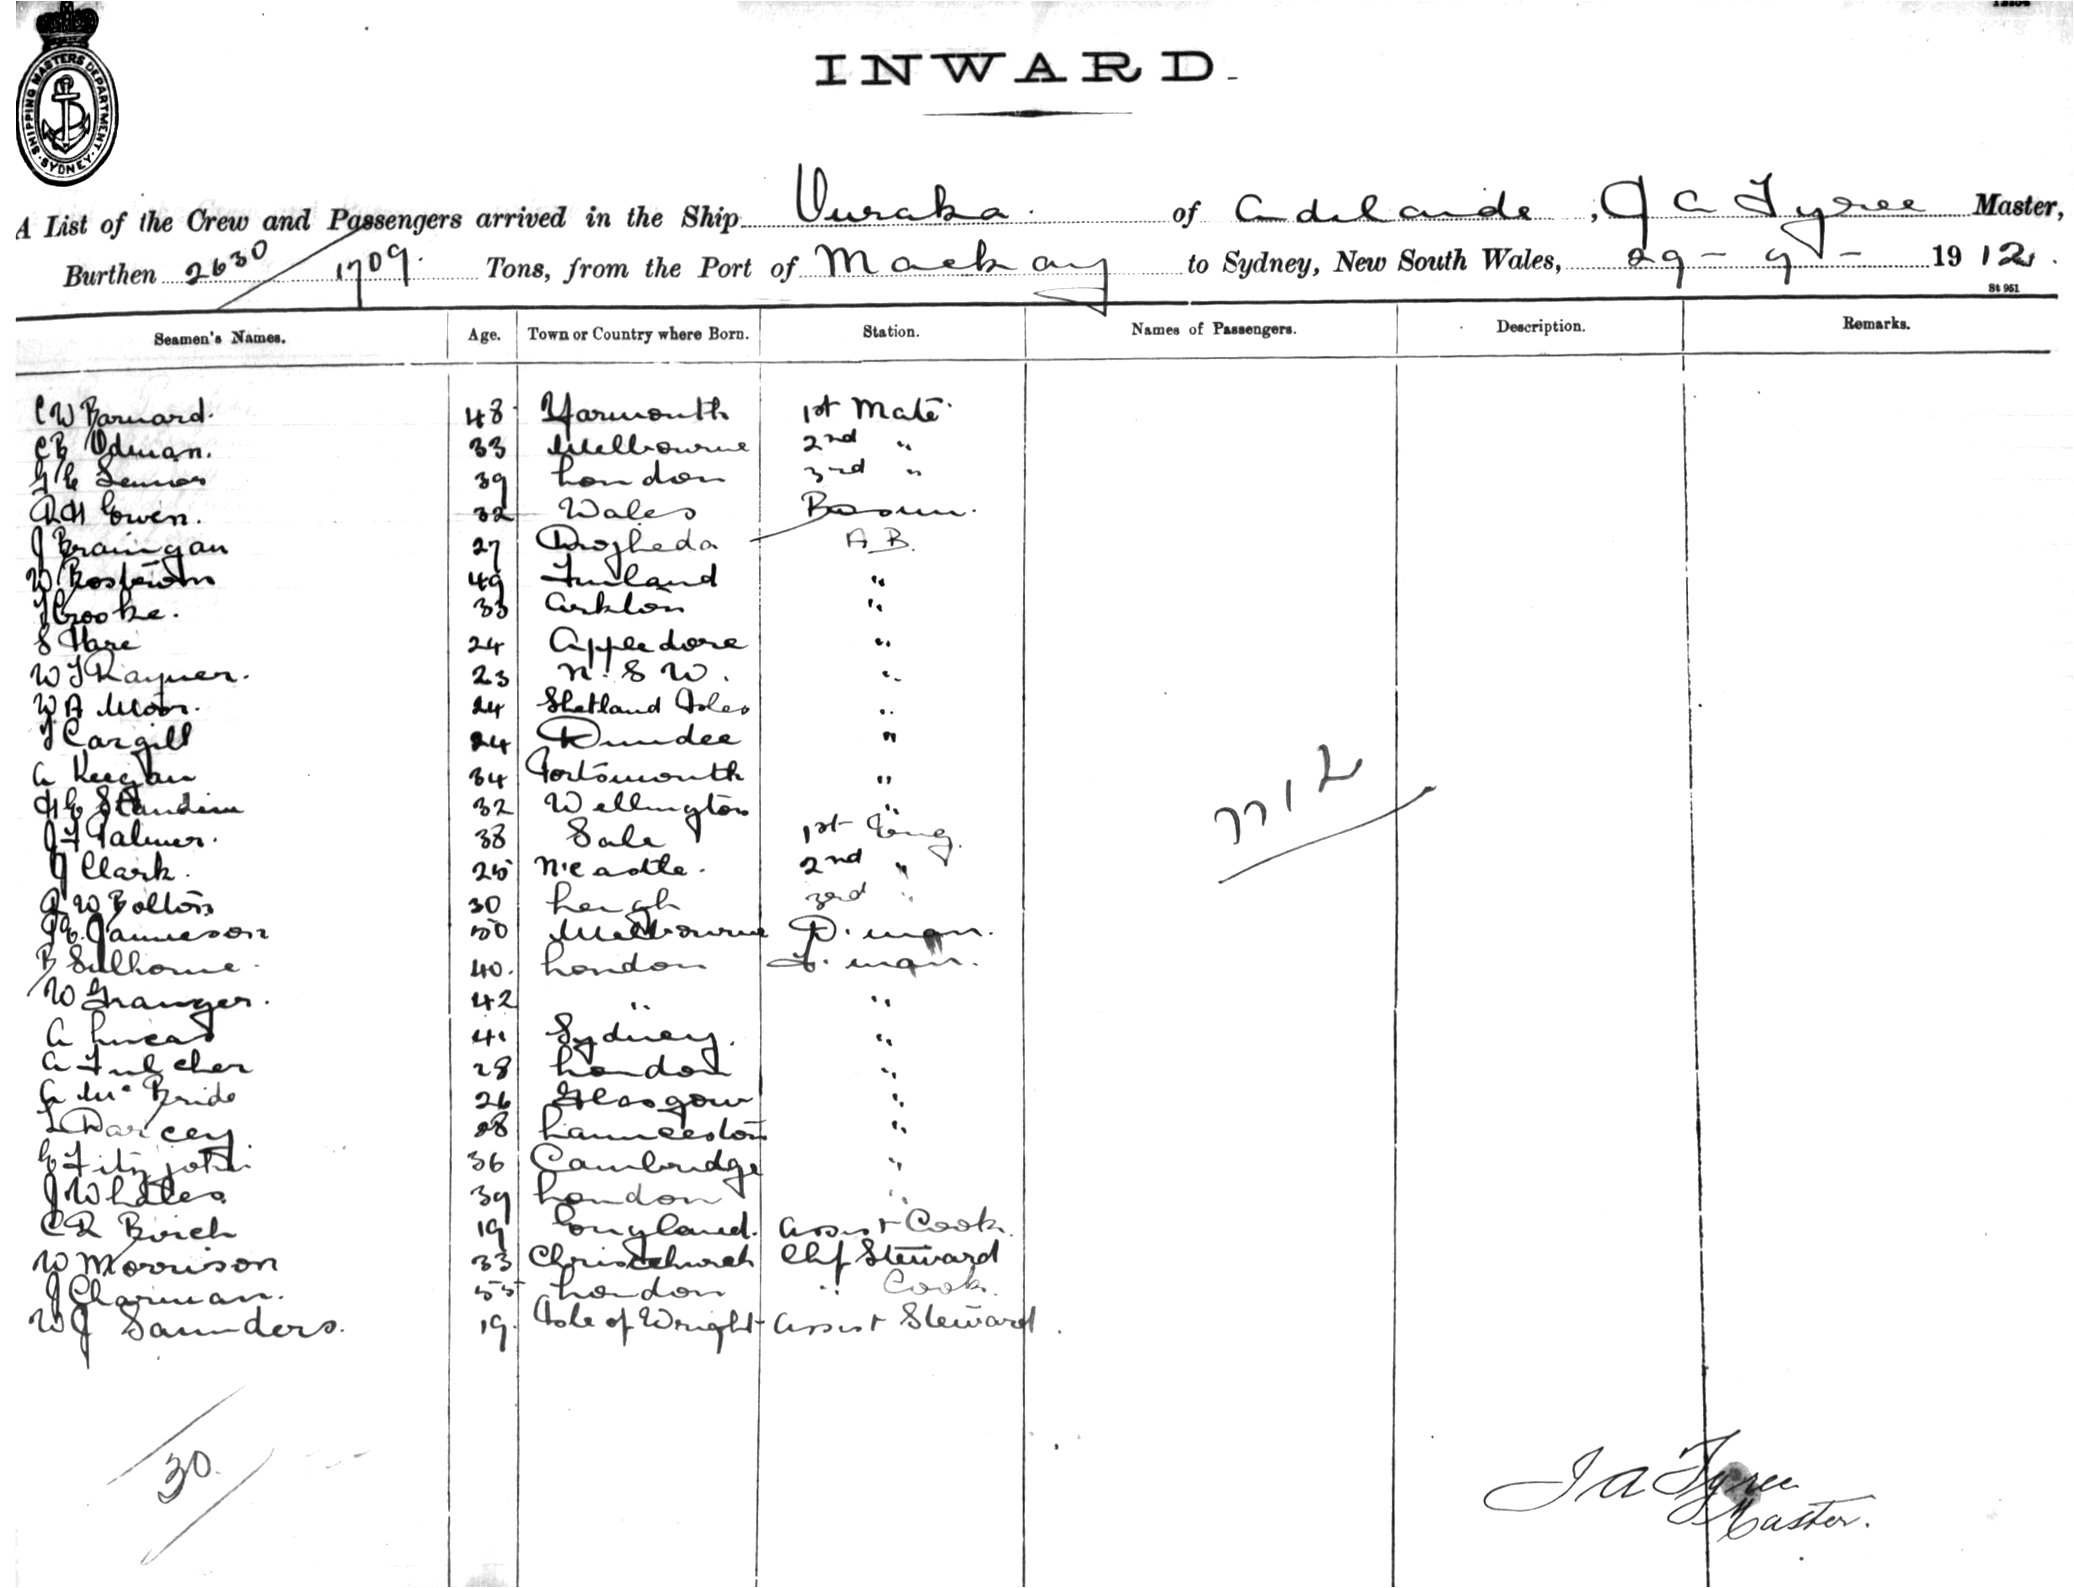 SHIPPING MASTERS DEPARTMENT. SYDNEY.
INWARD.
A List of the Crew and Passengers arrived in the Ship Ouraka. of Adelaide, J A Tyree Master,
Burthen 2630 / 1709. Tons, from the Port of Mackay to Sydney, New South Wales, 29 - 9 - 1912.
St 961
Seamen's Names. Age. Town or Country where Born. Station. Names of Passengers. Description. Remarks.
C W Barnard. 48 Yarmouth 1st Mate
C B Odman. 33 Melbourne 2nd "
39 London 3rd "
R H Owen. 32 Wales Bosun.
J Brainigan 27 Drogheda A B.
W 49 Finland "
T Crooke. 33 "
S Hare 24 Appledore "
W J Rayner. 23 N. S W. "
W A Moor. 24 Shetland Isles "
J Cargill 24 Dundee "
A Keegan 34 Portsmouth "
H E Standim 32 Wellington "
J F Palmer. 38 Sale 1st Eng.
J Clark. 25 N'Castle. 2nd "
R W Bolton 30 Leigh 3rd "
Jameson 50 Melbourne D. man.
B 40. London F. man.
W Granger. 42 " "
A Lucas 41 Sydney. "
A Fulcher 28 London "
A McBride 26 Glasgow "
L Darcey 28 Launceston "
E Fitzjohn 36 Cambridge "
J Whiles 39 London "
C R Birch 19 England. Assist Cook.
W Morrison 33 Christchurch Chf Steward
J Charman. 55 London " Cook.
W J Saunders. 19. Isle of Wright Assist Steward.
30.
J A Tyree
Master.